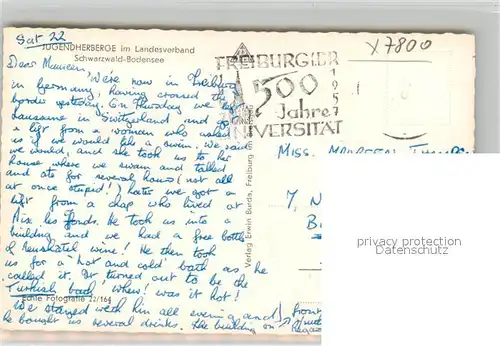 Sat. 22
JUGENDHERBERGE im Landesverband
Schwarzwald-Bodensee
X7800
FREIBURG I. BR
500
Jahre
UNIVERSITÄT
1957
Dear Maureen,
We're now in Freiburg
in Germany, having crossed the
border yesterday. On Thursday we left
Lausanne in Switzerland and got
a lift from a woman who asked
us if we would like a swim. We said
we would, and she took us to her
house where we swam and talked
and ate for several hours (not all
at once stupid!) Later we got a
lift from a chap who lived at
Aix les Fonds. He took us into a
building and we had a free bottle
of Neuchatel wine! He then took
us for a 'hot and cold bath' as he
called it. It turned out to be the
Turkish bath, whew! was it hot!
We stayed with him all evening and
he bought us several drinks. The building on
front
Miss. Maureen
7, N
B
Verlag Erwin Burda, Freiburg
Echte Fotografie 22/164
privacy protection
Datenschutz